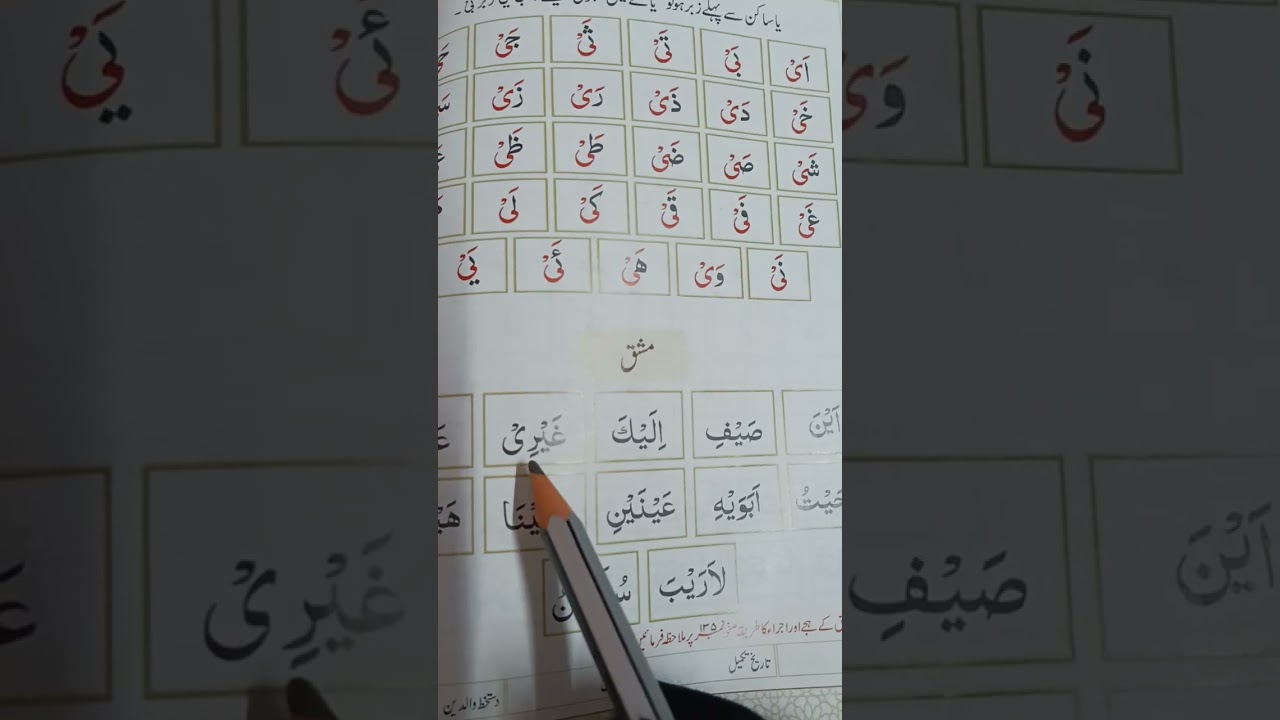 یا ساکن سے پہلے زبر ہو تو
اَیْ بَیْ تَیْ ثَیْ جَیْ
خَیْ دَیْ ذَیْ رَیْ زَیْ
شَیْ صَیْ ضَیْ طَیْ ظَیْ
غَیْ فَیْ قَیْ کَیْ لَیْ
نَیْ وَیْ هَیْ ئَیْ یَیْ
مشق
اَیْنَ صَیْفِ اِلَیْكَ غَیْرِیْ
اَبَوَیْهِ عَیْنَیْنِ
لَارَیْبَ
کے ہجے اور اجراء کا طریقہ صفحہ نمبر ۱۳۵ پر ملاحظہ فرمائیں
تاریخ تکمیل
دستخط والدین